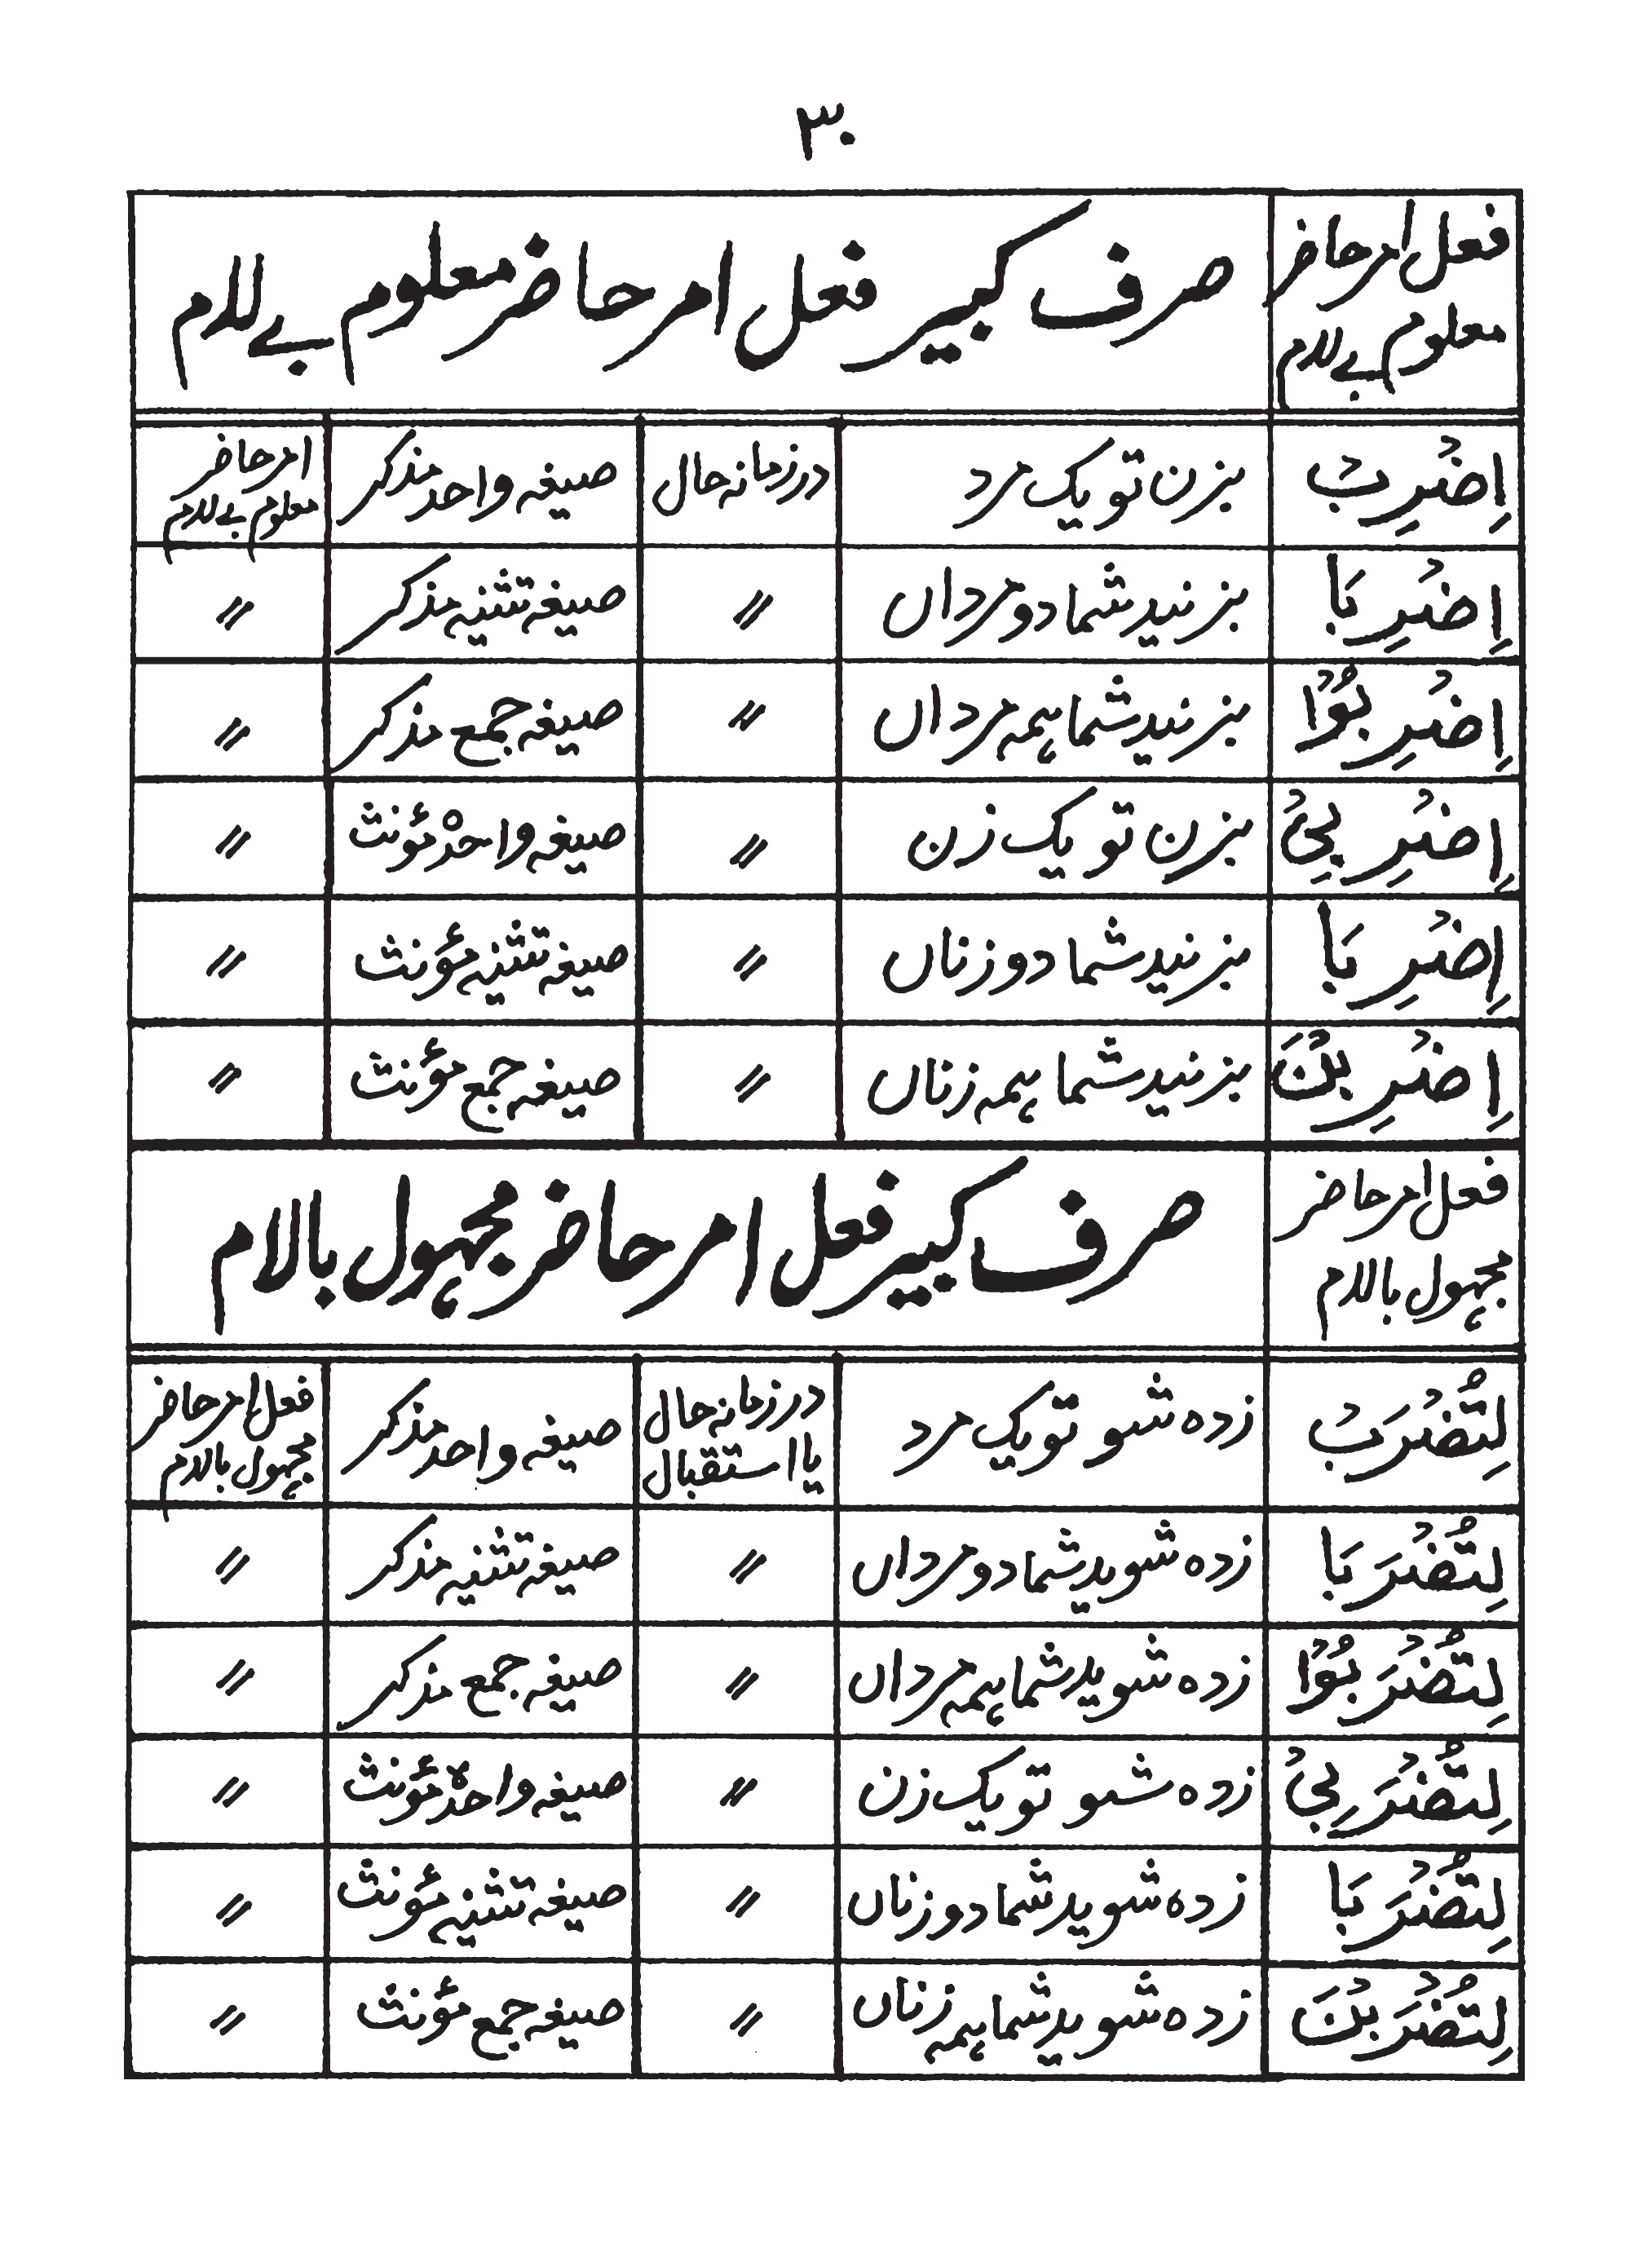 ۳۰
فعل امر حاضر
معلوم بے للام
صرف کبیر فعل امر حاضر معلوم بے للام
اِضْرِبْ بزن تو یک مرد در زمانہ حال صیغہ واحد مذکر امر حاضر
معلوم بے للام
اِضْرِبَا بزنید شما دو مرداں 〃 صیغہ تثنیہ مذکر 〃
اِضْرِبُوْا بزنید شما ہمہ مرداں 〃 صیغہ جمع مذکر 〃
اِضْرِبِیْ بزن تو یک زن 〃 صیغہ واحدہ مؤنث 〃
اِضْرِبَا بزنید شما دو زناں 〃 صیغہ تثنیہ مؤنث 〃
اِضْرِبْنَ بزنید شما ہمہ زناں 〃 صیغہ جمع مؤنث 〃
فعل امر حاضر
مجہول باللام
صرف کبیر فعل امر حاضر مجہول بالام
لِتُضْرَبْ زدہ شو تو یک مرد در زمانہ حال
یا استقبال صیغہ واحد مذکر فعل امر حاضر
مجہول باللام
لِتُضْرَبَا زدہ شوید شما دو مرداں 〃 صیغہ تثنیہ مذکر 〃
لِتُضْرَبُوْا زدہ شوید شما ہمہ مرداں 〃 صیغہ جمع مذکر 〃
لِتُضْرَبِیْ زدہ شو تو یک زن 〃 صیغہ واحدہ مؤنث 〃
لِتُضْرَبَا زدہ شوید شما دو زناں 〃 صیغہ تثنیہ مؤنث 〃
لِتُضْرَبْنَ زدہ شوید شما ہمہ زناں 〃 صیغہ جمع مؤنث 〃